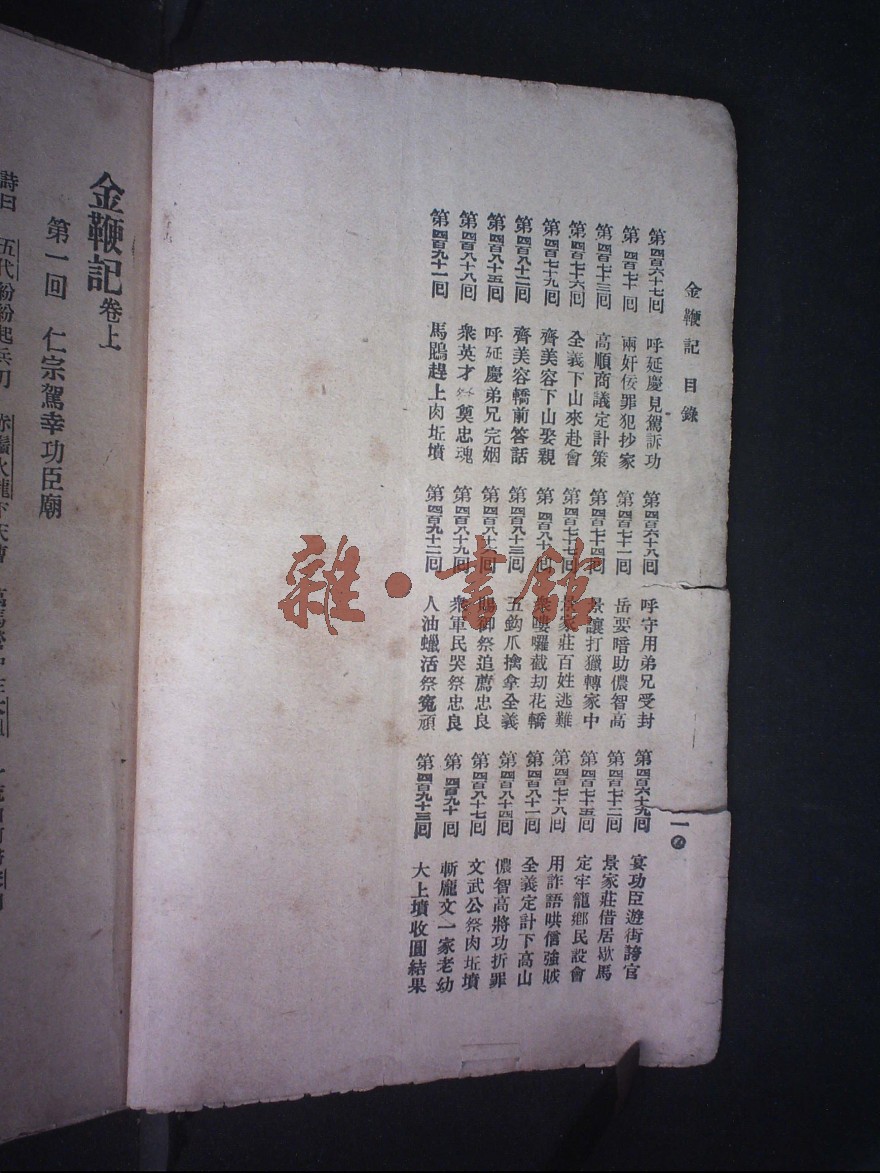 金鞭記目錄
第四百六十七回 呼延慶見駕訴功 第四百六十八回 呼守用弟兄受封 第四百六十九回 宴功臣遊街謗官
第四百七十回 兩奸佞罪犯抄家 第四百七十一回 岳要暗助儂智高 第四百七十二回 景家莊借居歇馬
第四百七十三回 高順商議定計策 第四百七十四回 景讓打獵轉家中 第四百七十五回 定牢籠鄉民設會
第四百七十六回 全義下山來赴會 第四百七十七回 景家莊百姓逃難 第四百七十八回 用詐語哄信強賊
第四百七十九回 齊美容下山娶親 第四百八十回 衆嘍囉截刧花轎 第四百八十一回 全義定計下高山
第四百八十二回 齊美容轎前答話 第四百八十三回 五鈎爪擒拿全義 第四百八十四回 儂智高將功折罪
第四百八十五回 呼延慶弟兄完姻 第四百八十六回 賜御祭追薦忠良 第四百八十七回 文武公祭肉坵墳
第四百八十八回 衆英才祭奠忠魂 第四百八十九回 衆軍民哭祭忠良 第四百九十回 斬龐文一家老幼
第四百九十一回 馬鵾趕上肉坵墳 第四百九十二回 人油蠟活祭寃頑 第四百九十三回 大上墳收圓結果
一
雜·書館
金鞭記卷上
第一回 仁宗駕幸功臣廟
詩曰 五代紛紛起兵刀